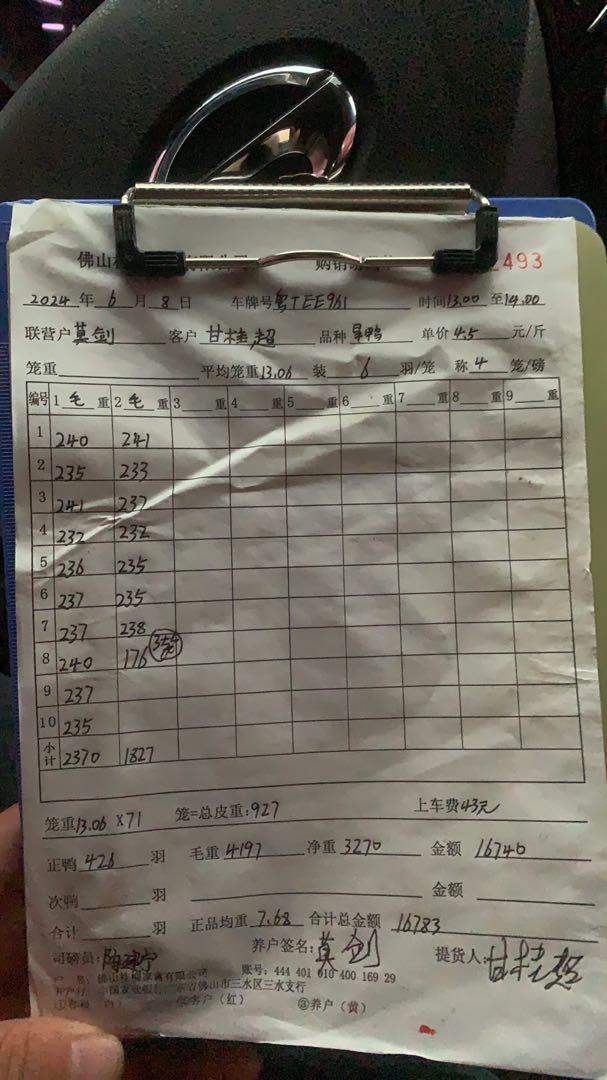 佛山
493
2024 年 6 月 8 日 车牌号 粤TEE961 时间 13.00 至 14.00
联营户 莫剑 客户 甘桂超 品种 单价 4.5 元/斤
笼重 平均笼重 13.06 装 6 羽/笼 称 4 笼/磅
编号 1 毛 重 2 毛 重 3 重 4 重 5 重 6 重 7 重 8 重 9 重
1 240 241
2 235 233
3 241 237
4 232 232
5 236 235
6 237 235
7 237 238
8 240 176 3笼
9 237
10 235
小计 2370 1827
笼重 13.06 X71 笼=总皮重: 927 上车费 43元
正鸭 426 羽 毛重 4197 净重 3270 金额 16740
次鸭 羽 金额
合计 羽 正品均重 7.68 合计总金额 16783
司磅员: 养户签名: 莫剑 提货人: 甘桂超
户 名: 佛山 有限公司 账号: 444 401 010 400 169 29
开户行 中国农业银行 佛山市三水区三水支行
②客户（红） ③养户（黄）